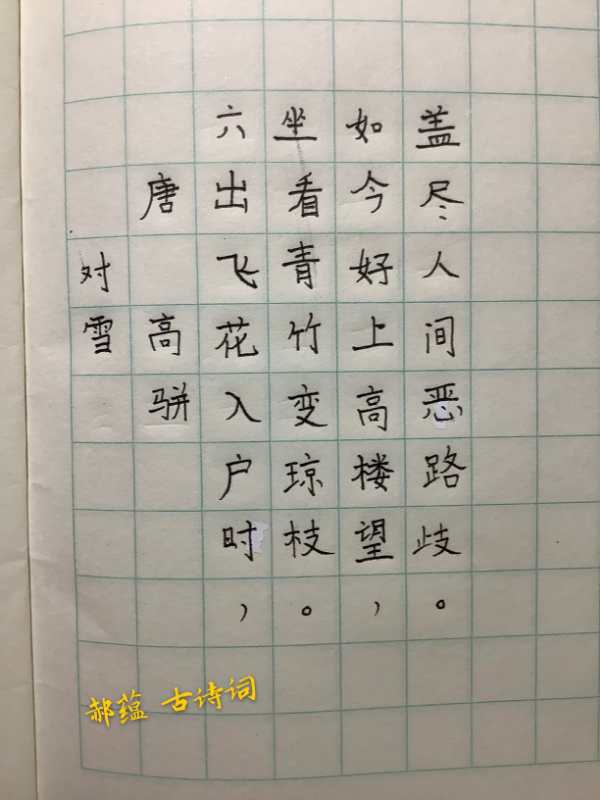 对雪
唐 高骈
六出飞花入户时，
坐看青竹变琼枝。
如今好上高楼望，
盖尽人间恶路歧。
郝蕴 古诗词